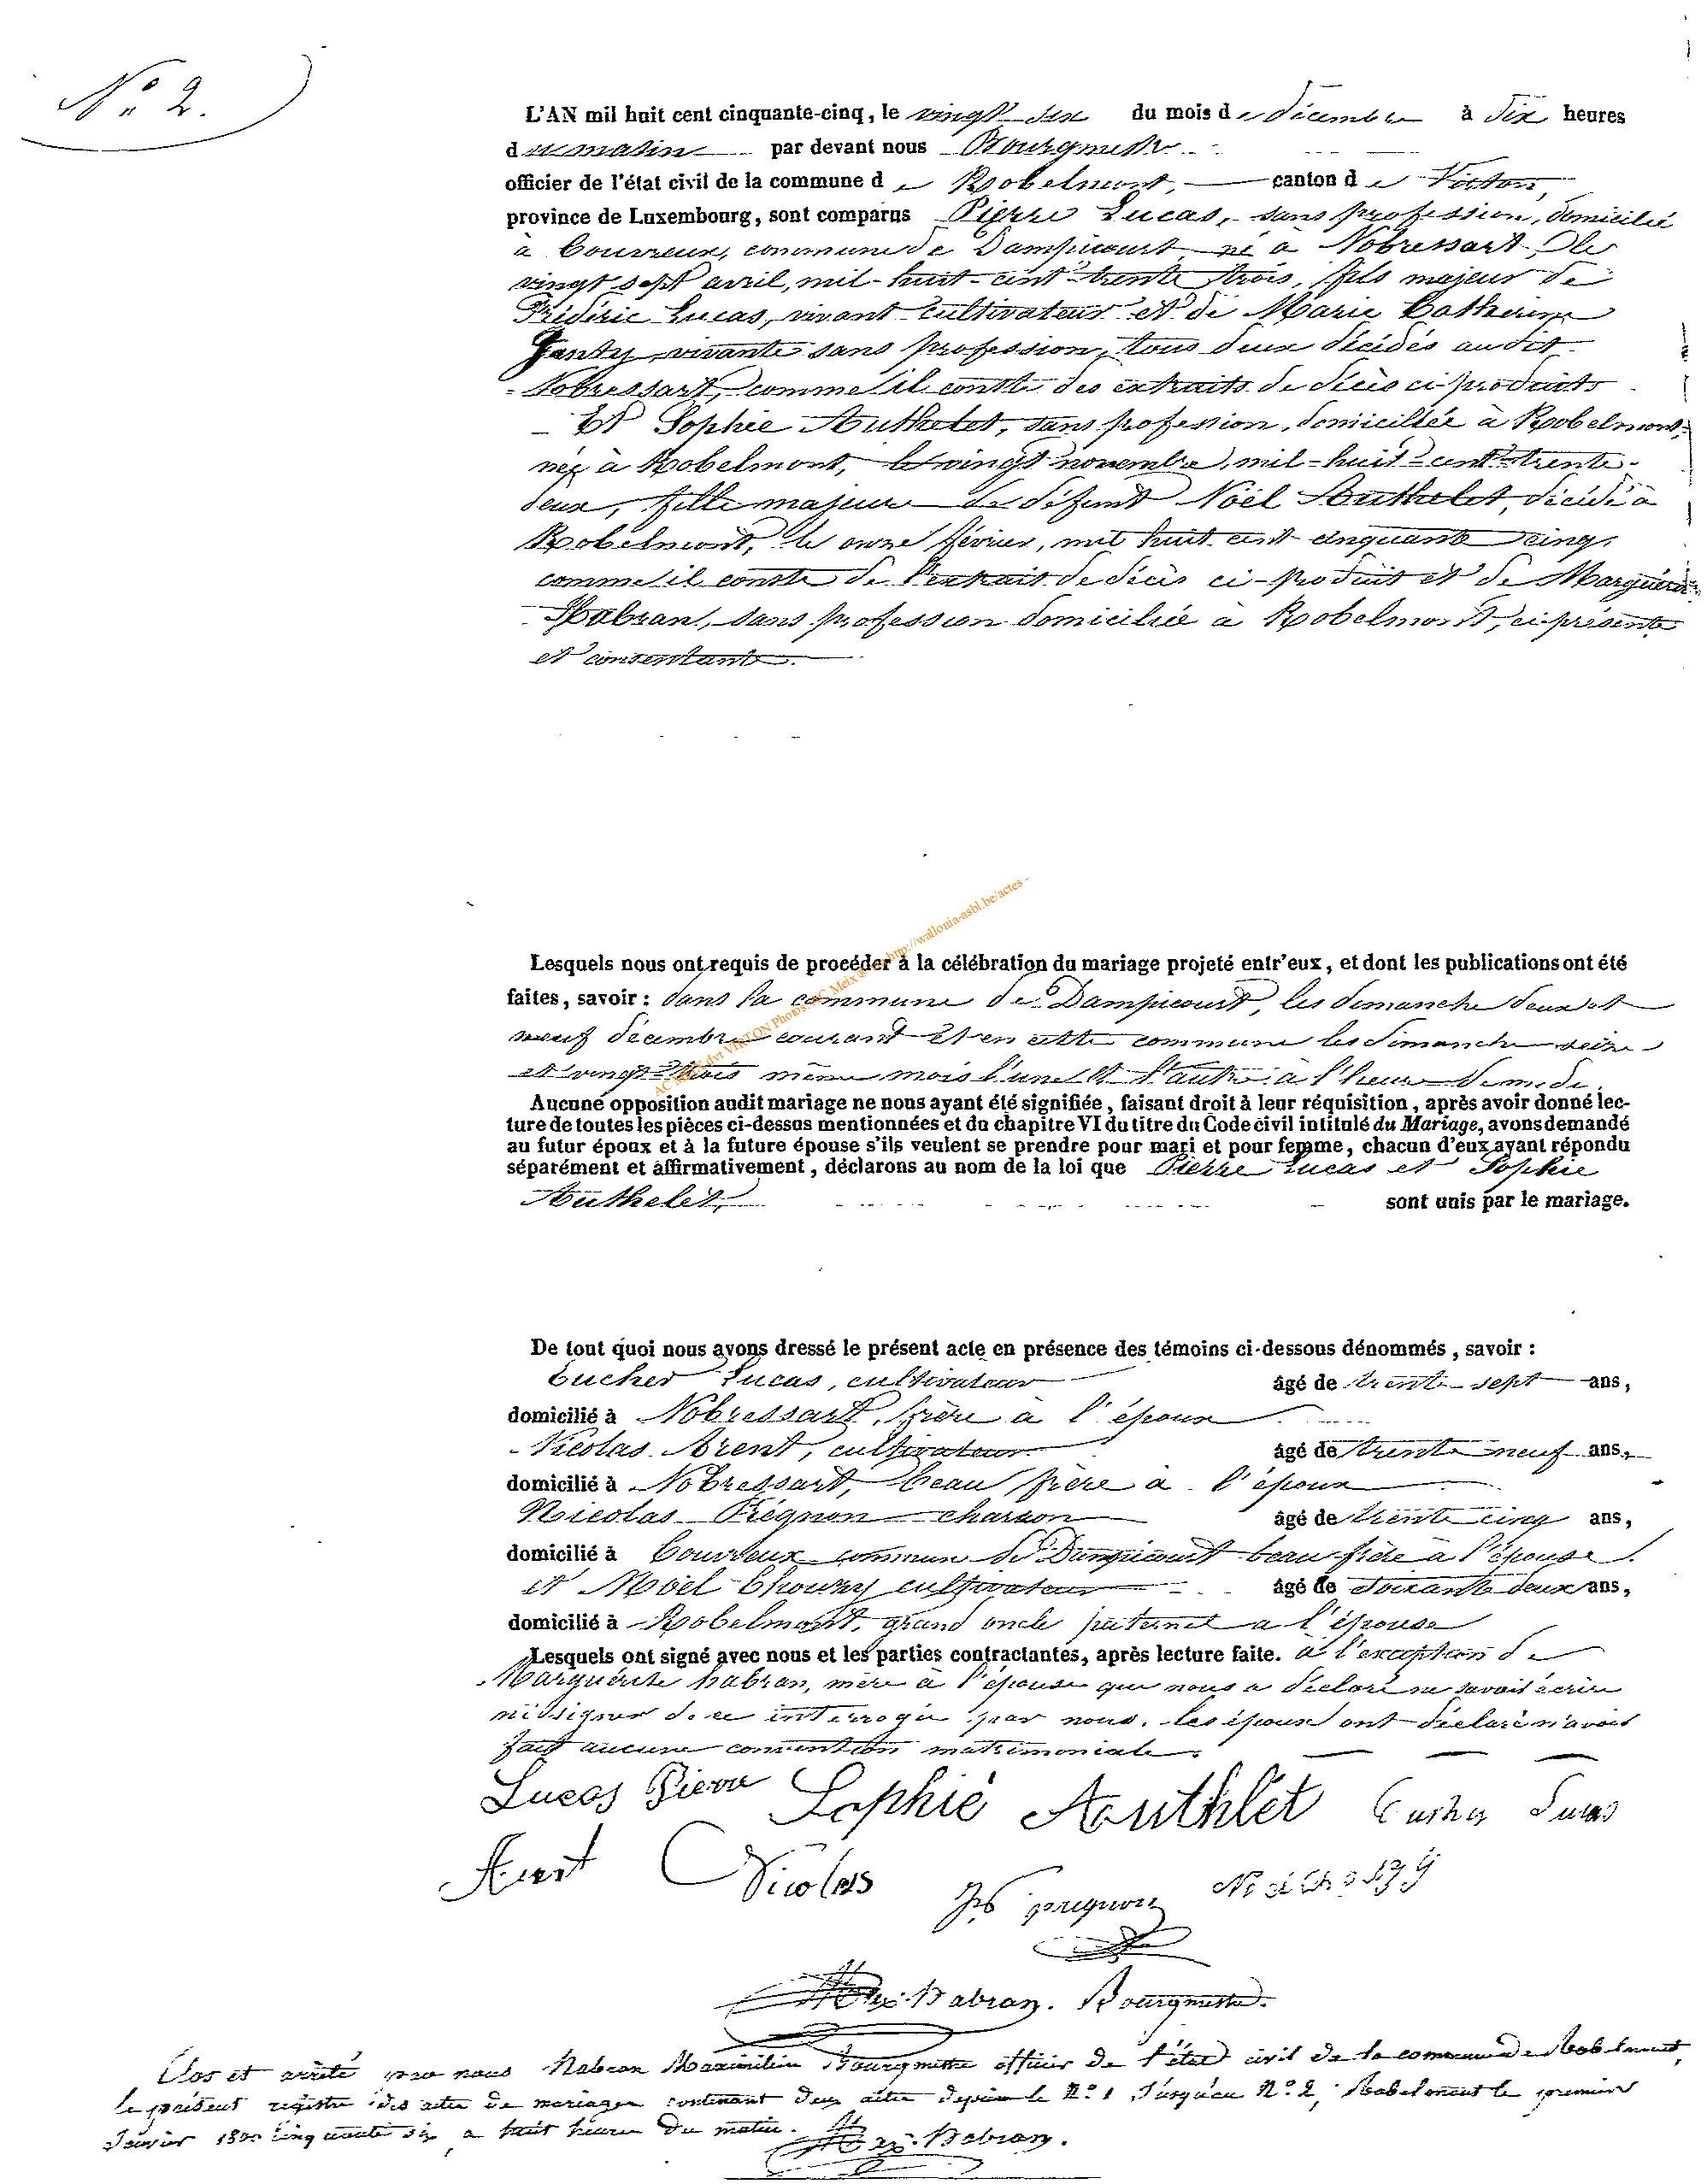 N° 2.
L'AN mil huit cent cinquante-cinq, le vingt six du mois de décembre à dix heures
du matin par devant nous Bourgmestre
officier de l'état civil de la commune de Robelmont, canton de Virton,
province de Luxembourg, sont comparus Pierre Lucas, sans profession, domicilié
à Couvreux, commune de Dampicourt né à Nobressart, le
vingt sept avril, mil-huit-cent-trente trois, fils majeur de
Frédéric Lucas, vivant cultivateur et de Marie Catherine
vivante sans profession, tous deux décédés audit
Nobressart, comme il conste des extraits de décès ci-produits
Et Sophie Authelet, sans profession, domiciliée à Robelmont,
née à Robelmont, le vingt novembre, mil-huit-cent-trente-
deux, fille majeure de défunt Noël Authelet, décédé à
Robelmont, le onze février, mil huit cent cinquante cinq,
comme il conste de l'extrait de décès ci-produit et de Marguerite
Habran, sans profession domiciliée à Robelmont, ci-présente
et consentante.
Lesquels nous ont requis de procéder à la célébration du mariage projeté entr'eux, et dont les publications ont été
faites, savoir : dans la commune de Dampicourt, les dimanche deux et
neuf décembre courant et en cette commune les dimanche seize
et vingt trois même mois l'une et l'autre à l'heure de midi.
AC Meix dvt VIRTON Photos: AC Meix http://wallonia-asbl.be/actes -
Aucune opposition audit mariage ne nous ayant été signifiée, faisant droit à leur réquisition, après avoir donné lec-
ture de toutes les pièces ci-dessus mentionnées et du chapitre VI du titre du Code civil intitulé du Mariage, avons demandé
au futur époux et à la future épouse s'ils veulent se prendre pour mari et pour femme, chacun d'eux ayant répondu
séparément et affirmativement, déclarons au nom de la loi que Pierre Lucas et Sophie
Authelet, sont unis par le mariage.
De tout quoi nous avons dressé le présent acte en présence des témoins ci-dessous dénommés, savoir :
Eucher Lucas, cultivateur âgé de trente-sept ans,
domicilié à Nobressart, frère à l'époux
Nicolas Arent, cultivateur âgé de trente neuf ans,
domicilié à Nobressart, beau frère à l'époux
Nicolas Prégnon charron âgé de trente cinq ans,
domicilié à Couvreux commune de Dampicourt beau-frère à l'épouse.
et Noël Thouny cultivateur âgé de soixante deux ans,
domicilié à Robelmont, grand oncle paternel a l'épouse
Lesquels ont signé avec nous et les parties contractantes, après lecture faite. à l'exception de
Marguérite habran, mère à l'épouse que nous a déclaré ne savoir écrire
ni signer de ce interrogée par nous. les époux ont déclaré n'avoir
fait aucune convention matrimoniale.
Lucas Pierre Sophie Aouthlet Eucher Lucas
Arent Nicolas
prégnon
Habran. Bourgmestre.
Clos et arrêté par nous Habran Maximilien Bourgmestre officier de l'état civil de la commune de Robelmont,
le présent registre des actes de mariages contenant deux actes depuis le N° 1 jusqu'au N° 2, Robelmont le premier
Janvier 1800 cinquante six a huit heures du matin. Habran.